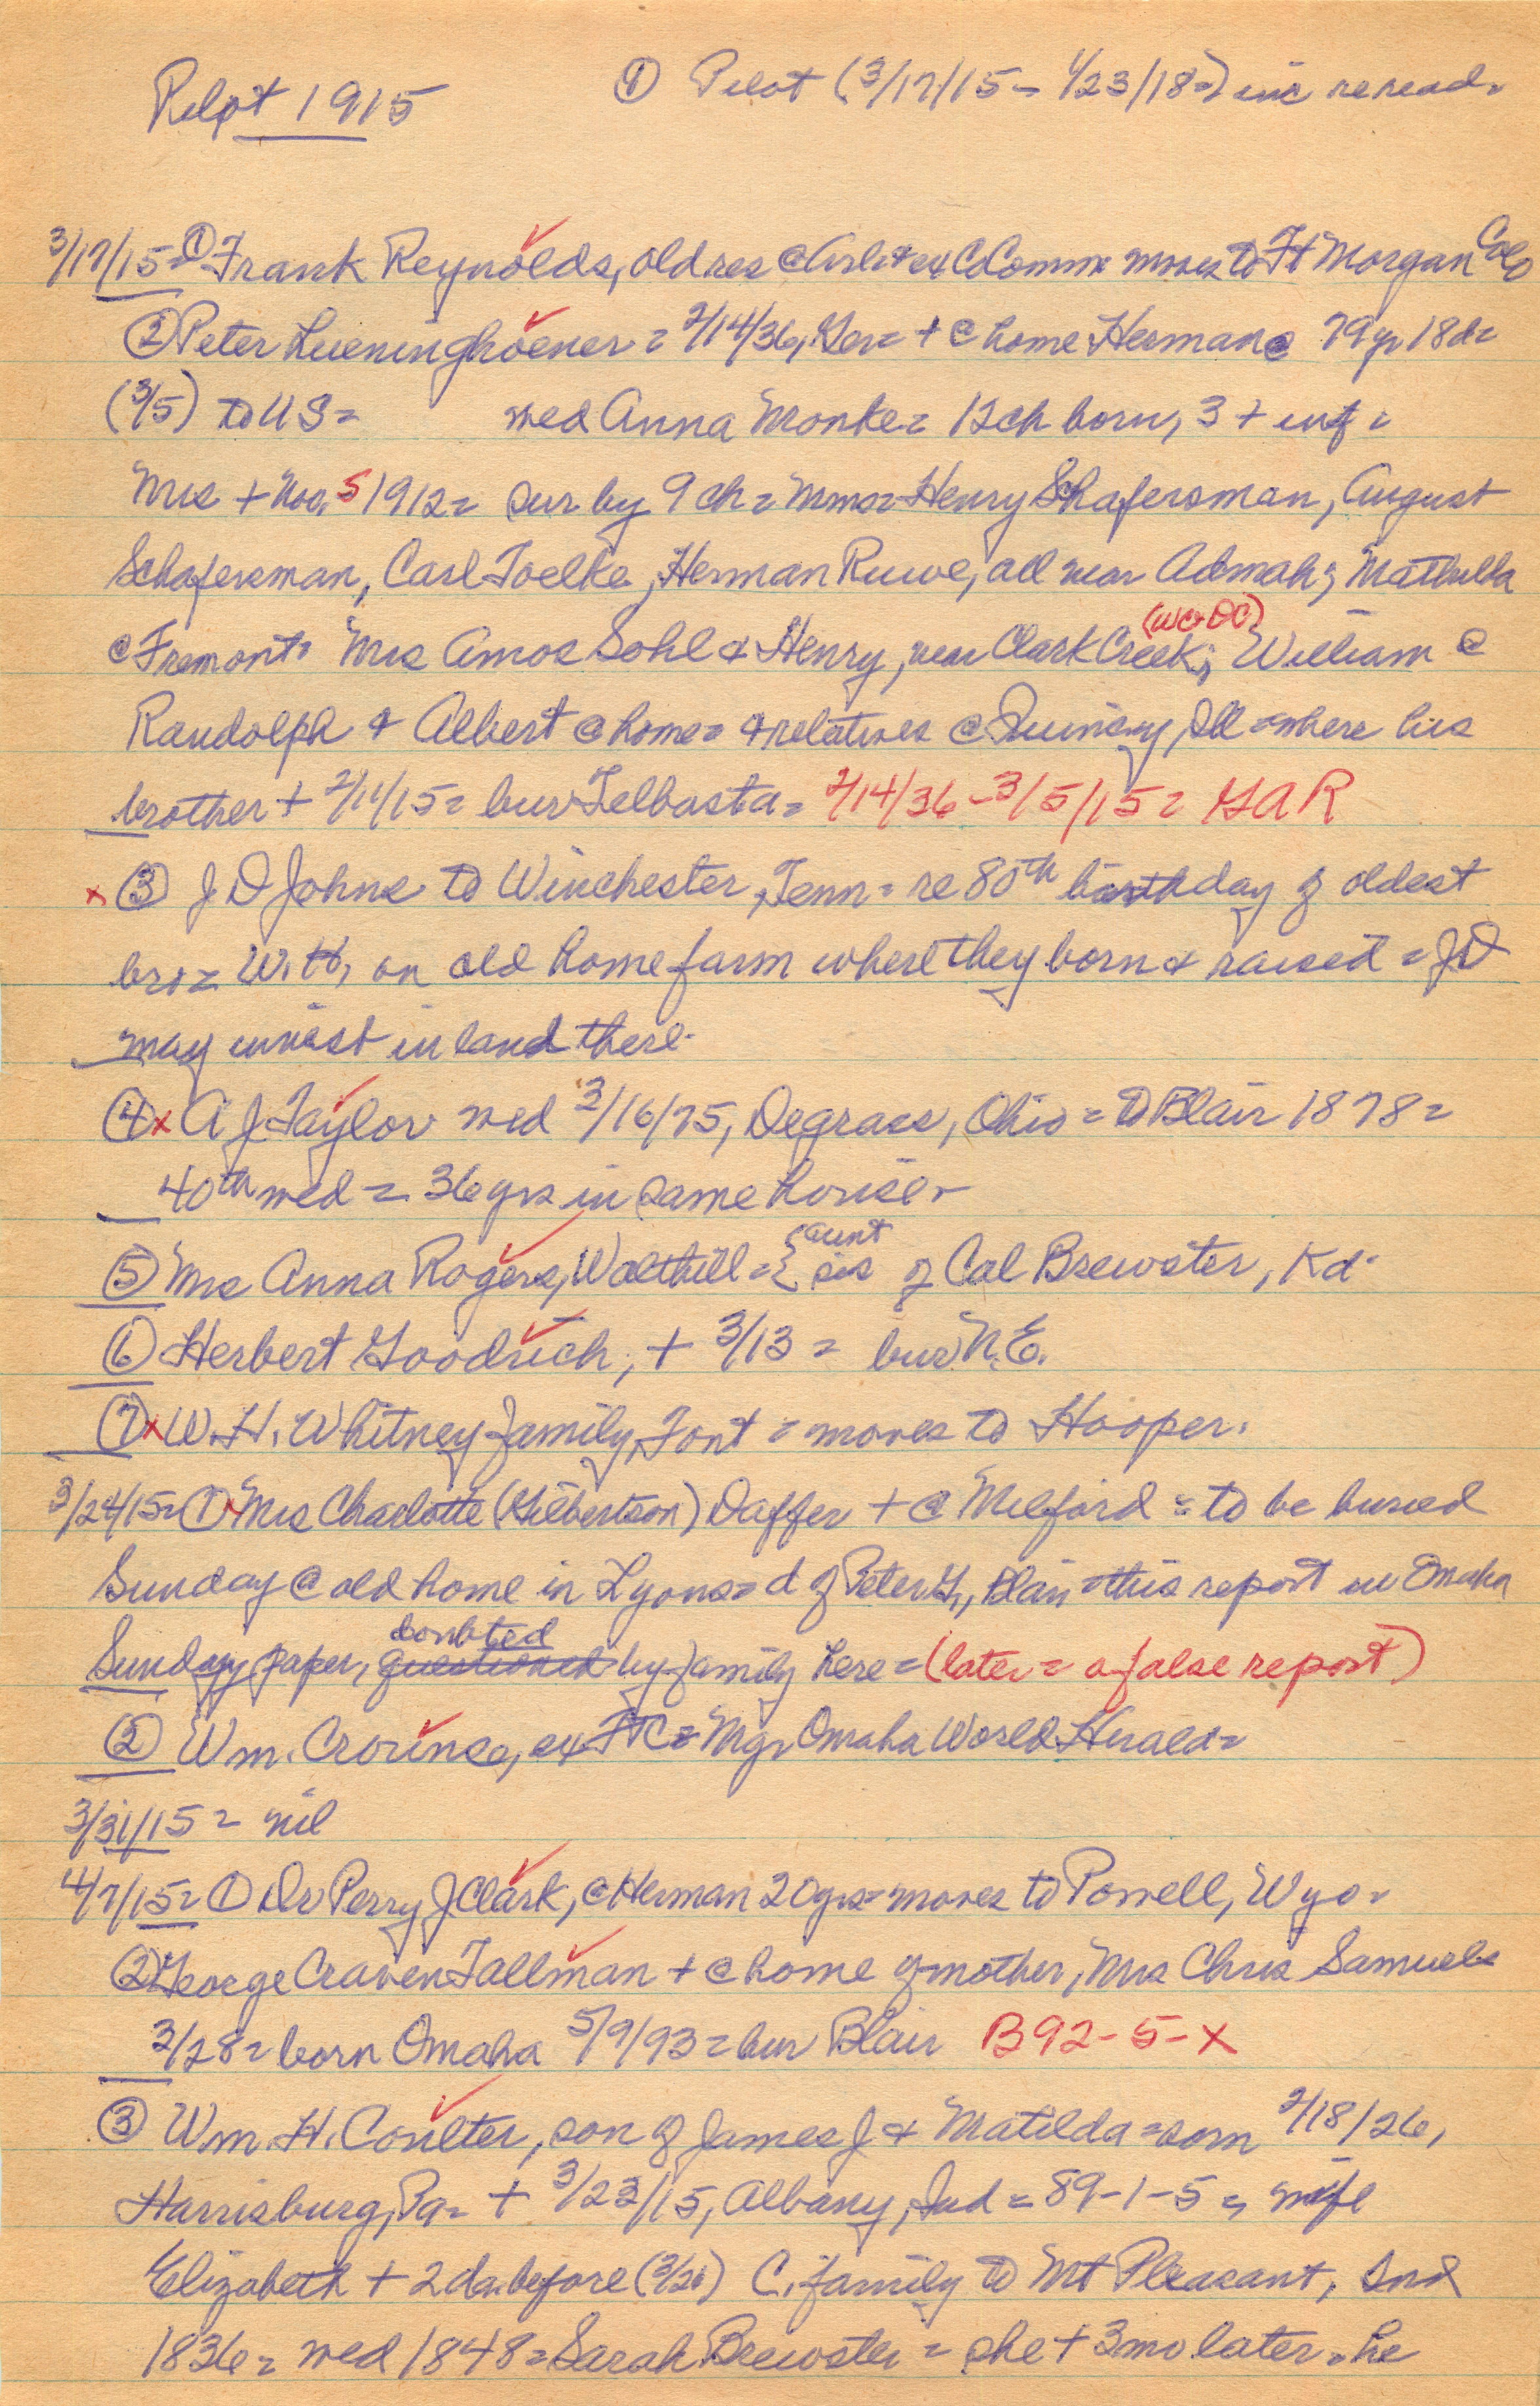 Pilot 1915
① Pilot (3/17/15 - 1/23/18=) inc reread.
3/17/15= ① Frank Reynolds, old res @ Arl & ex C Comm moves to Ft Morgan Colo
② Peter Lueninghoener = 2/14/36, Ger= + @ home Herman @ 79 yr 18 d=
(3/5) to US= wed Anna Monke= 12 ch born, 3 + inf =
Mrs + Nov. 5 1912= sur by 9 ch = Mmes= Henry Schafersman, August
Schafersman, Carl Toelke, Herman Ruwe, all near Admah; Mathilda
@ Fremont= Mrs Amos Sohl & Henry, near Clark Creek; (WC & DC) William @
Randolph & Albert @ home= & relatives @ Quincy, Ill = where his
brother + 2/11/15= bur Telbasta= 2/14/36 - 3/5/15= GAR
x ③ J D Johns to Winchester, Tenn= re 80th birthday of oldest
bro= W.H, on old home farm where they born & raised = JD
may invest in land there.
④ x A J Taylor wed 3/16/75, Degraes, Ohio = to Blair 1878=
40th wed = 36 yrs in same house-
⑤ Mrs Anna Rogers, Walthill = { aunt sis of Cal Brewster, Kd.
⑥ Herbert Goodrich, + 3/13 = bur N.E.
⑦ x W.H. Whitney family, Font = moves to Hooper.
3/24/15= ① x Mrs Charlotte (Gilbertson) Daffer + @ Milford = to be buried
Sunday @ old home in Lyons= d of Peter G., Blair = this report in Omaha
Sunday paper, questioned doubted by family here = (later = a false report)
② Wm. Crounse, ex Ft C = Mgr Omaha World Herald=
3/31/15= nil
4/7/15= ① Dr Perry J Clark, @ Herman 20 yrs= moves to Powell, Wyo.
② George Craven Tallman + @ home of mother, Mrs Chris Samuels
3/28= born Omaha 5/9/93= bur Blair B92-5-X
③ Wm. H. Coulter, son of James J & Matilda = born 2/18/26,
Harrisburg, Pa= + 3/23/15, Albany, Ind = 89-1-5 =, wife
Elizabeth + 2 da. before (3/21) C. family to Mt Pleasant, Ind
1836= wed 1848= Sarah Brewster = she + 3 mo later = he